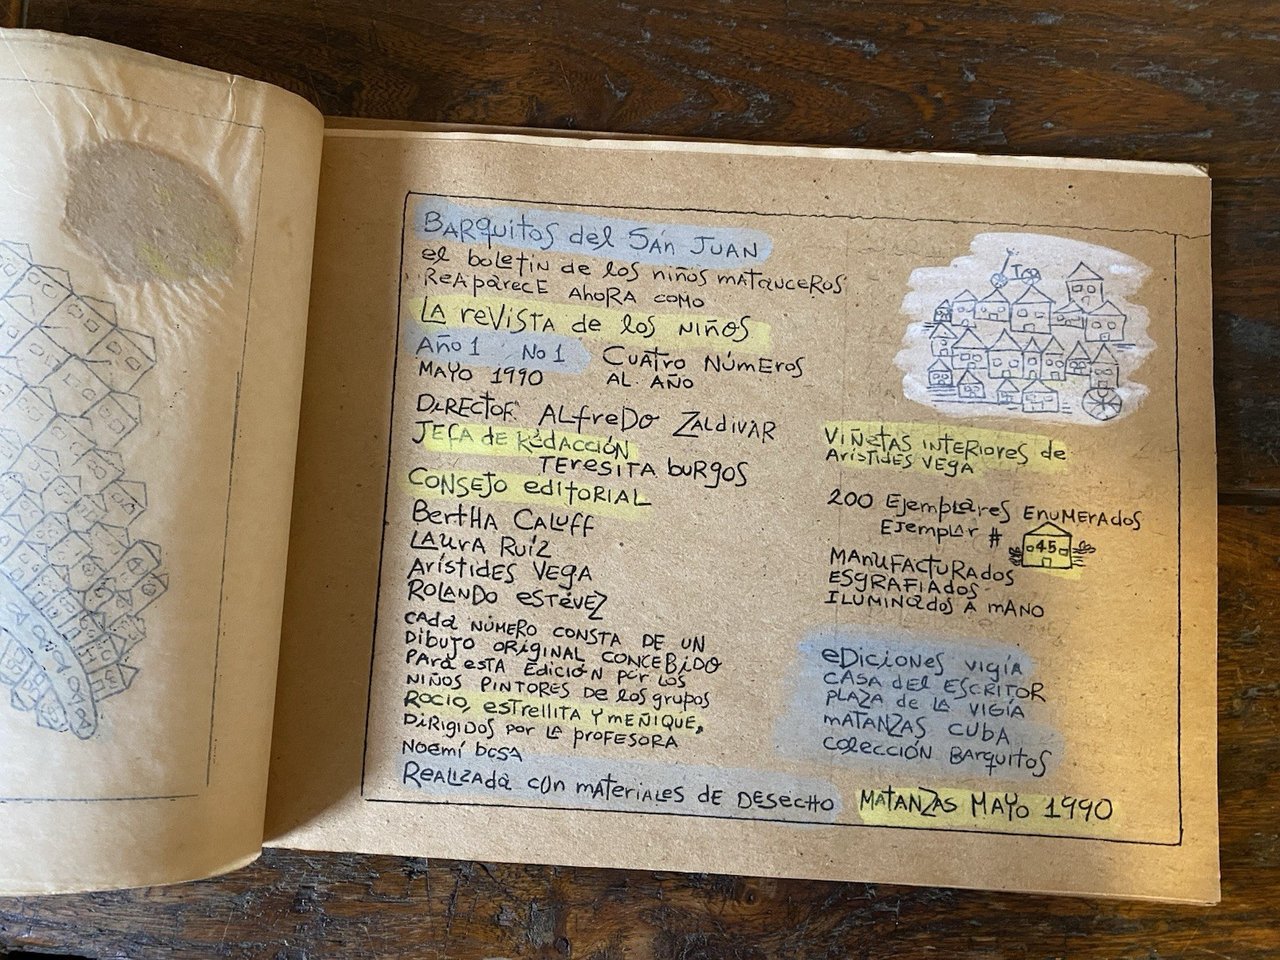 Barquitos del San Juan
el boletin de los niños matanceros
Reaparece ahora como
La revista de los niños
Año 1 No 1
Mayo 1990
Cuatro números
al año
Director: Alfredo Zaldívar
Jefa de Redacción
Teresita Burgos
Consejo editorial
Bertha Caluff
Laura Ruiz
Arístides Vega
Rolando Estévez
cada número consta de un
dibujo original concebido
para esta edición por los
niños pintores de los grupos
Rocío, estrellita y meñique,
dirigidos por la profesora
Noemí
Realizada con materiales de desecho
Viñetas interiores de
Arístides Vega
200 Ejemplares enumerados
Ejemplar # 45
Manufacturados
esgrafiados
iluminados a mano
ediciones vigía
casa del escritor
plaza de la vigía
matanzas cuba
colección barquitos
Matanzas Mayo 1990